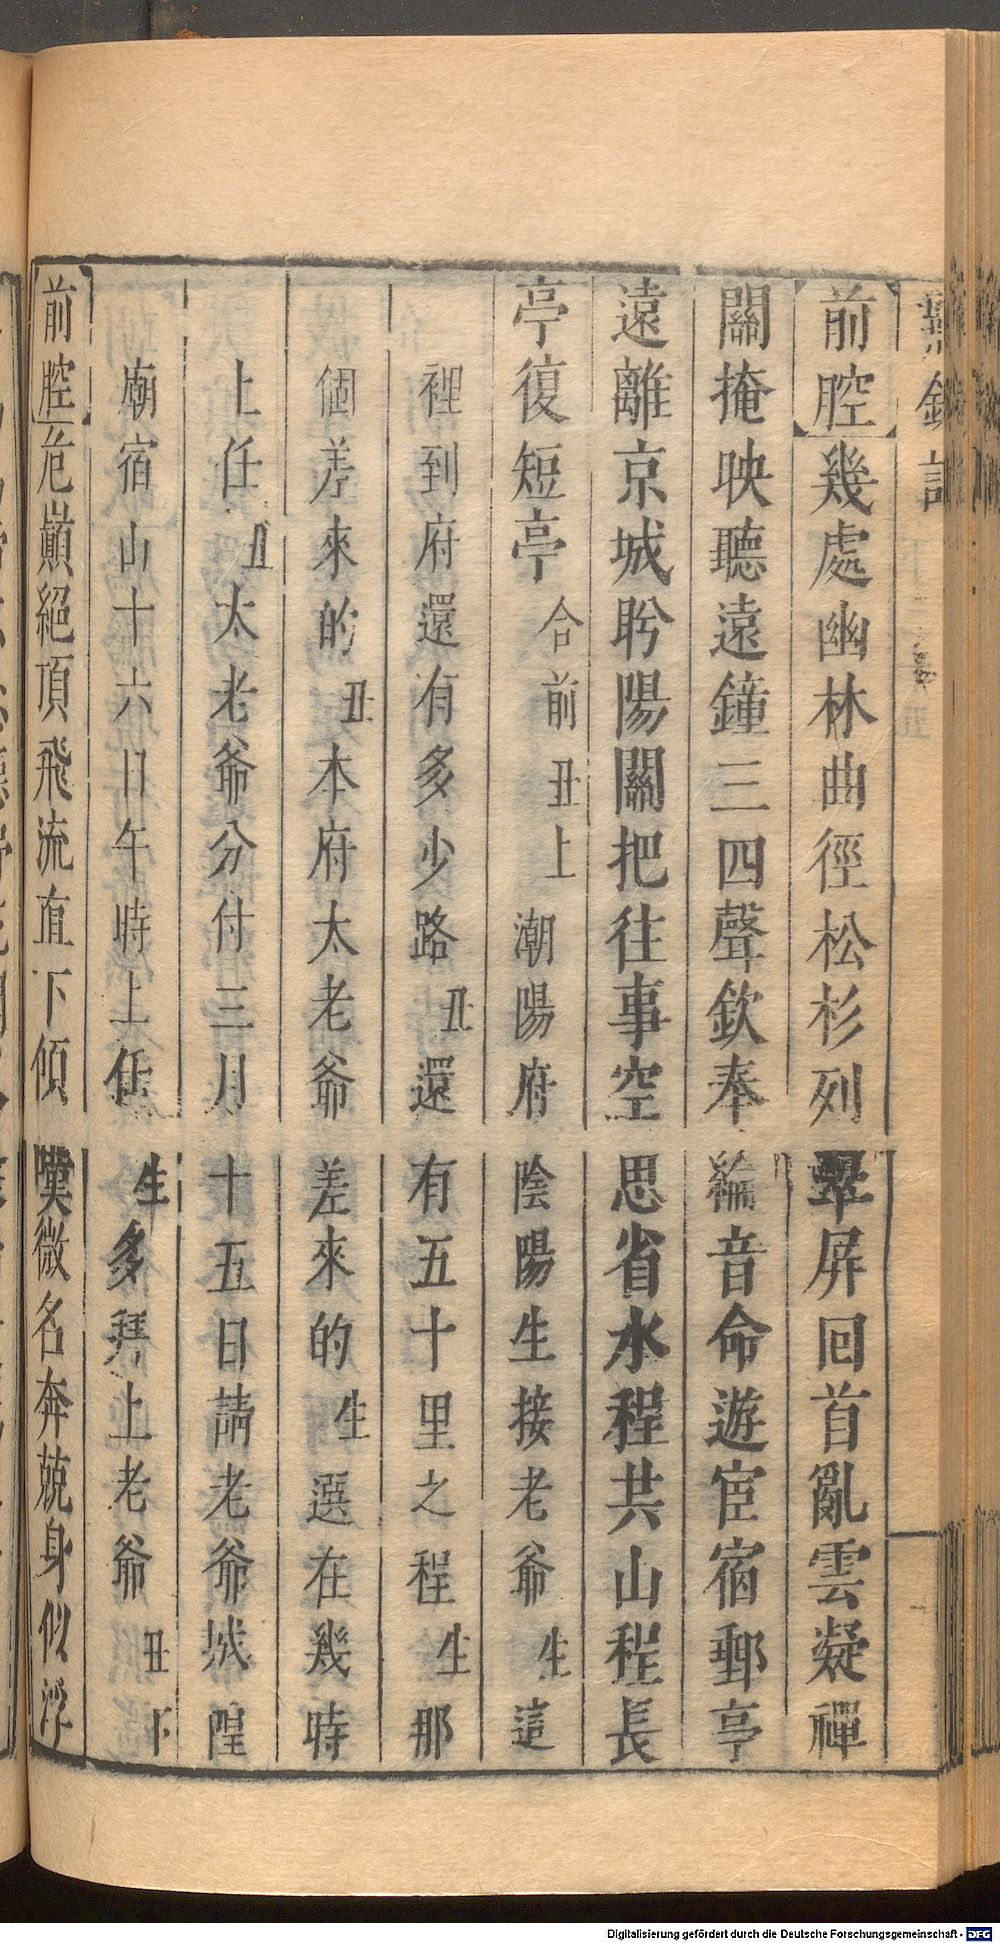 鸞釵記
前腔幾處幽林曲徑松杉列翠屏回首亂雲凝禪
關掩映聽遠鐘三四聲欽奉綸音命遊宦宿郵亭
遠離京城盻陽關把往事空思省水程共山程長
亭復短亭合前丑上潮陽府陰陽生接老爺生這
裡到府還有多少路丑還有五十里之程生那
個差來的丑本府太老爺差來的生選在幾時
上任丑太老爺分付三月十五日請老爺城隍
廟宿山十六日午時上任生多拜上老爺丑下
前腔危巔絕頂飛流直下傾嘆微名奔兢身似浮
Digitalisierung gefördert durch die Deutsche Forschungsgemeinschaft - DFG